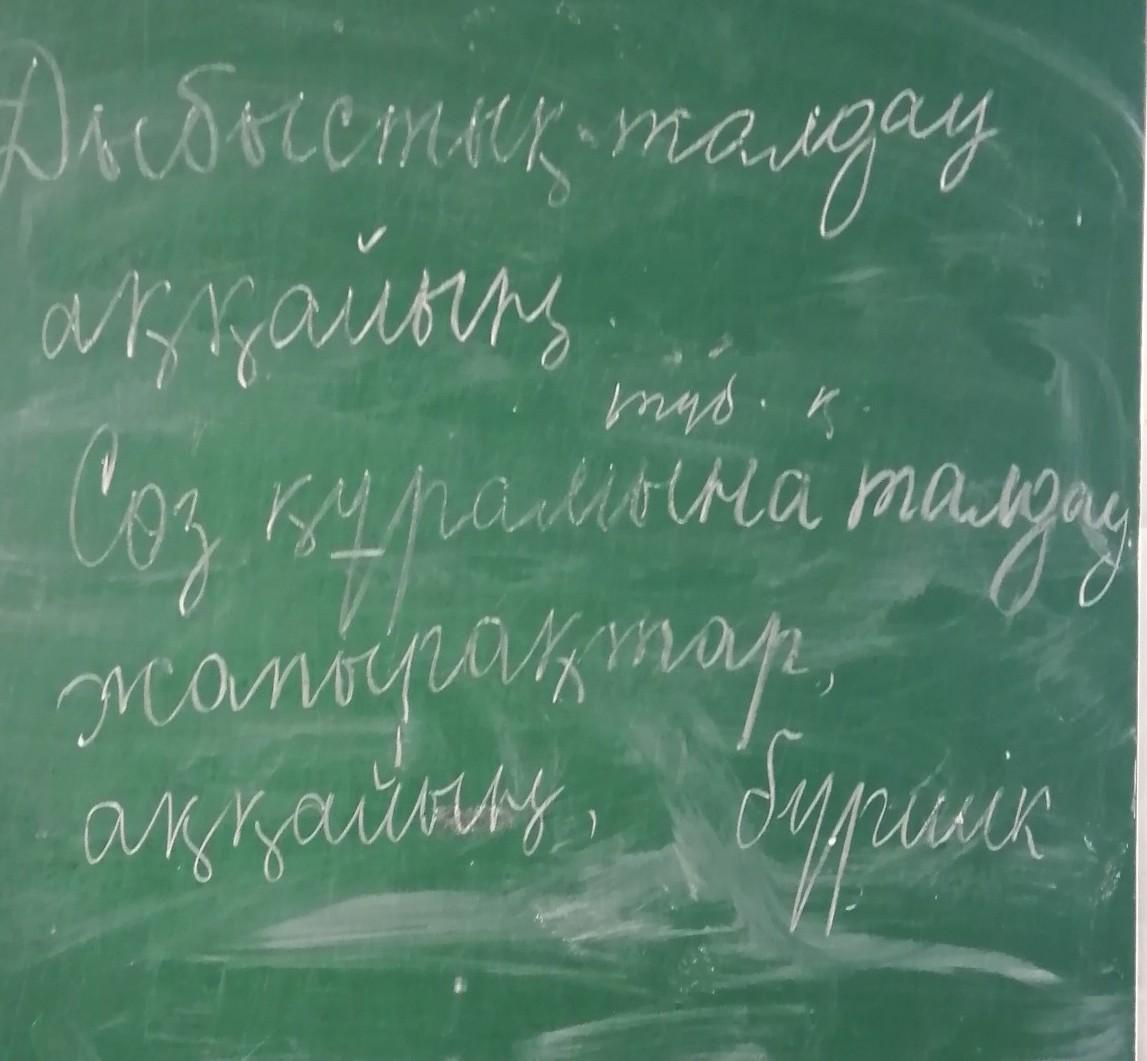 Дыбыстық талдау
аққайың
түб. қ.
Сөз құрамына талдау
жапырақтар,
аққайың, бүршік